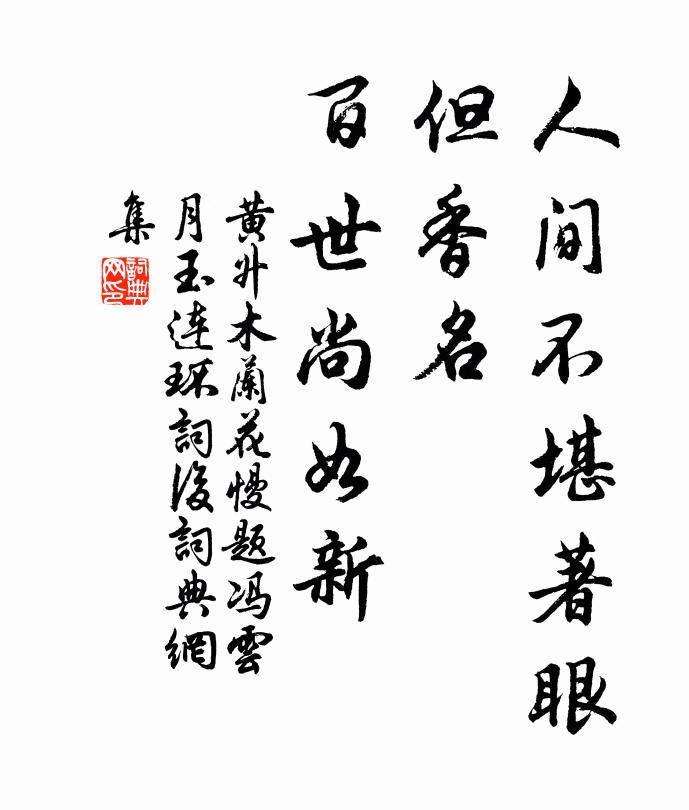 人間不堪著眼
但香名
百世尚如新
黄升木蘭花慢題冯雲
月玉連環詞後詞典網
集
詞典網印